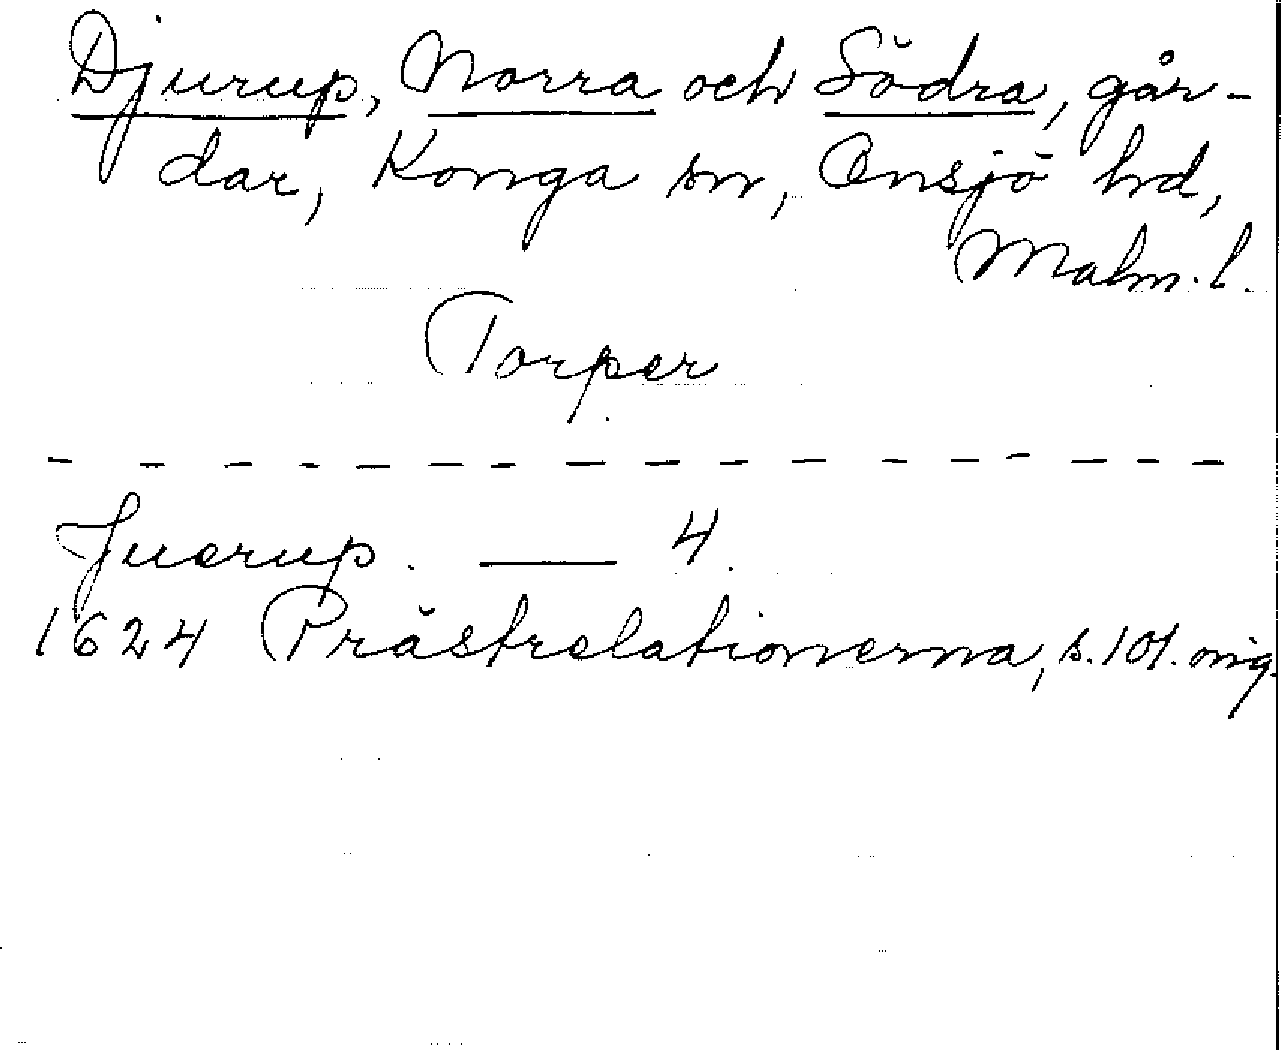 Djurup, Norra och Södra, går-
dar, Konga sn, Onsjö hd,
Malm. l.
Torper
- - - - - - - - - - - - - - - - -
Juerup. — 4.
1624 Prästrelationerna, s. 101. orig.